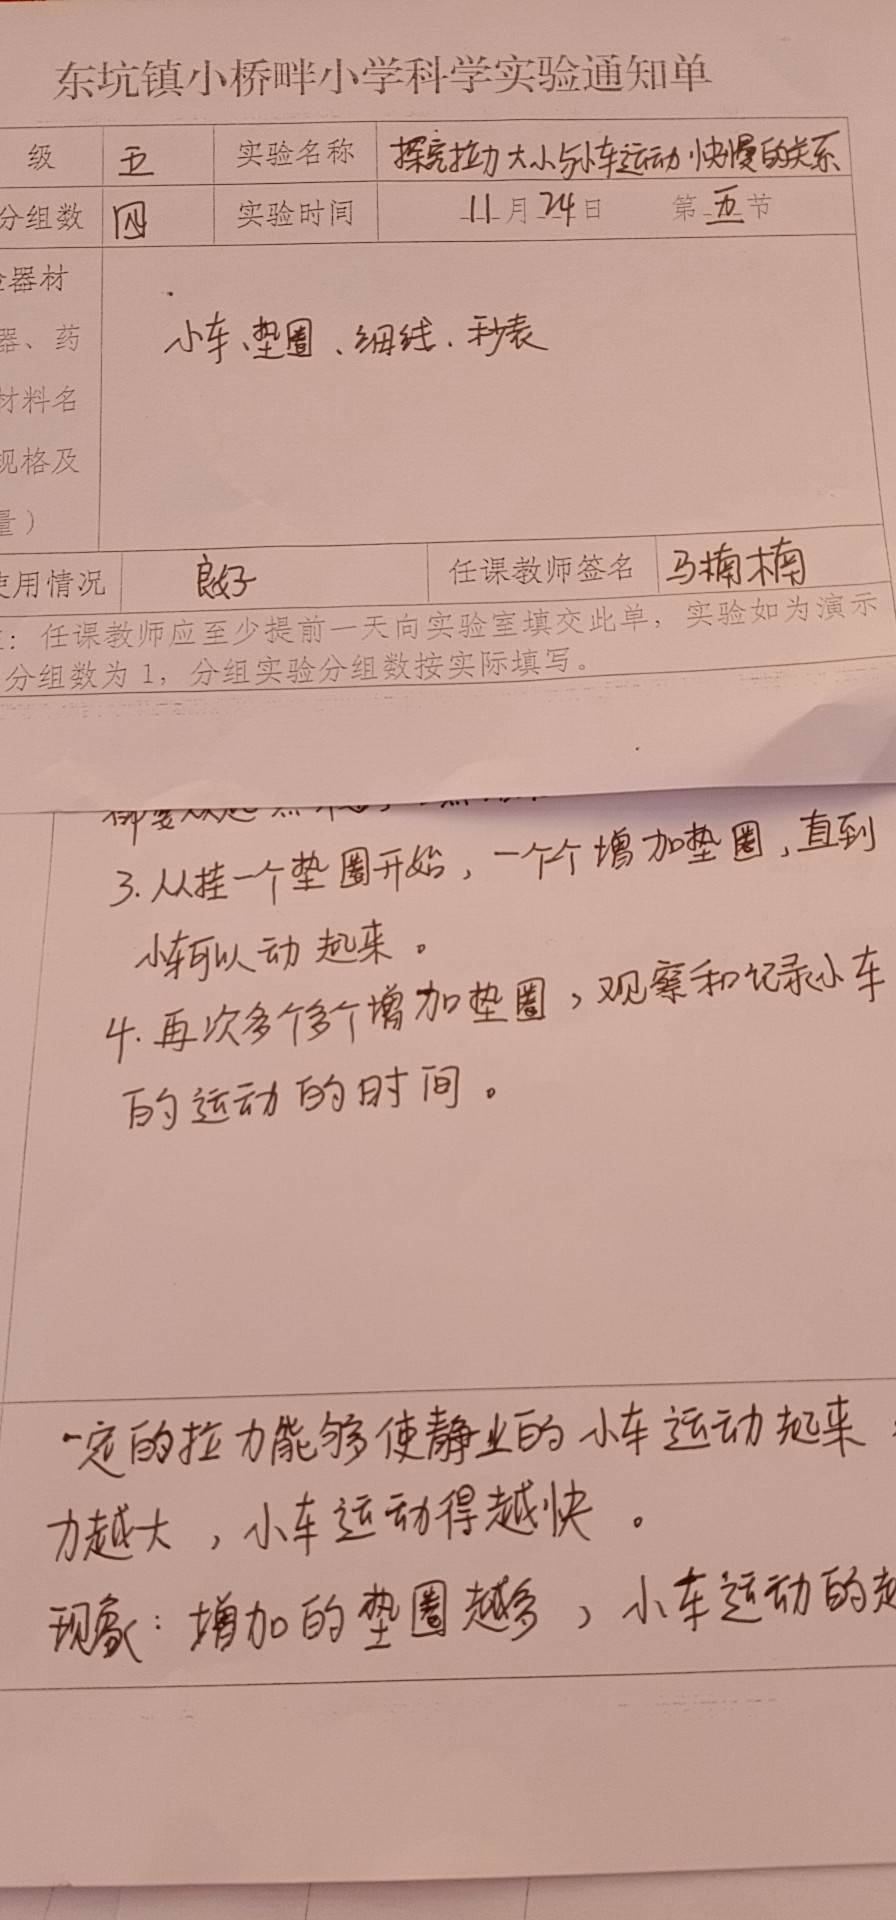 东坑镇小桥畔小学科学实验通知单
级 五 实验名称 探究拉力大小与小车运动快慢的关系
分组数 四 实验时间 11月24日 第五节
器材
器、药
材料名
规格及
量）
小车、垫圈、细线、秒表
使用情况 良好 任课教师签名 马楠楠
：任课教师应至少提前一天向实验室填交此单，实验如为演示
分组数为1，分组实验分组数按实际填写。
3.从挂一个垫圈开始，一个个增加垫圈，直到
小车可以动起来。
4.再次多个多个增加垫圈，观察和记录小车
的运动的时间。
一定的拉力能够使静止的小车运动起来
力越大，小车运动得越快。
现象：增加的垫圈越多，小车运动的越